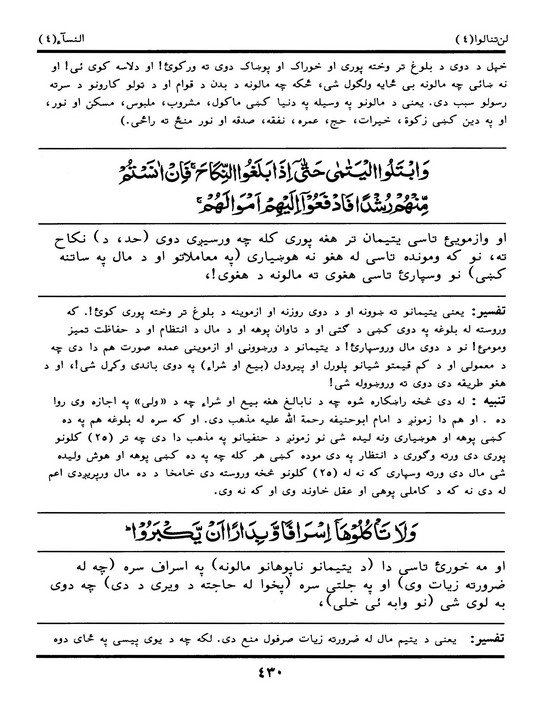 لن تنالوا (٤) النسآء (٤)
خپل د دوی د بلوغ تر وخته پوری او خوراک او پوښاک دوی ته ورکوئ! او دلاسه کوی ئی! او
نه ښائی چه مالونه بی ځایه ولگول شی، ځکه چه مالونه د بدن د قوام او د ټولو کارونو د سرته
رسولو سبب دی. یعنی د مالونو په وسیله په دنیا کښی ماکول، مشروب، ملبوس، مسکن او نور،
او په دین کښی زکوة، خیرات، حج، عمره، نفقه، صدقه او نور منځ ته راځی.)
وَابْتَلُوا الْيَتٰمٰى حَتّٰۤى اِذَا بَلَغُوا النِّكَاحَ ۚ فَاِنْ اٰنَسْتُمْ
مِّنْهُمْ رُشْدًا فَادْفَعُوْۤا اِلَيْهِمْ اَمْوَالَهُمْ ۚ
او وازمویئ تاسی یتیمان تر هغه پوری کله چه ورسیږی دوی (حد، د) نکاح
ته، نو که ومونده تاسی له هغو نه هوښیاری (په معاملاتو او د مال په ساتنه
کښی) نو وسپارئ تاسی هغوی ته مالونه د هغوی!،
تفسیر: یعنی یتیمانو ته ښوونه او د دوی روزنه او ازموینه د بلوغ تر وخته پوری کوئ!. که
وروسته له بلوغه په دوی کښی د گټی او د تاوان پوهه او د مال د انتظام او د حفاظت تمیز
ومومئ! نو د دوی مال وروسپارئ! د یتیمانو د ورښوونی او ازموینی عمده صورت هم دا دی چه
د معمولی او د کم قیمتو شیانو پلورل او پیرودل (بیع او شراء) په دوی باندی وکړل شی!، او د
هغو طریقه دی دوی ته وروښووله شی!
تنبیه : له دی څخه راښکاره شوه چه د نابالغ هغه بیع او شراء چه د «ولی» په اجازه وی روا
ده . او هم دا زمونږ د امام ابوحنیفه رحمة الله علیه مذهب دی. او که سره له بلوغه هم په ده
کښی پوهه او هوښیاری ونه لیده شی نو زمونږ د حنفیانو په مذهب دا دی چه تر (٢٥) کلونو
پوری دی ورته وگوری د انتظار په دی موده کښی هر کله چه په ده کښی پوهه او هوش ولیده
شی مال دی ورته وسپاری که نه له (٢٥) کلونو څخه وروسته دی خامخا د ده مال ورپریږدی اعم
له دی نه که د کاملی پوهی او عقل خاوند وی او که نه وی.
وَلَا تَاْكُلُوْهَاۤ اِسْرَافًا وَّبِدَارًا اَنْ يَّكْبَرُوْا ؕ
او مه خورئ تاسی دا (د یتیمانو ناپوهانو مالونه) په اسراف سره (چه له
ضرورته زیات وی) او په جلتی سره (پخوا له حاجته د ویری د دی) چه دوی
به لوی شی (نو وابه ئی خلی)،
تفسیر: یعنی د یتیم مال له ضرورته زیات صرفول منع دی. لکه چه د یوی پیسی په ځای دوه
٤٣٠